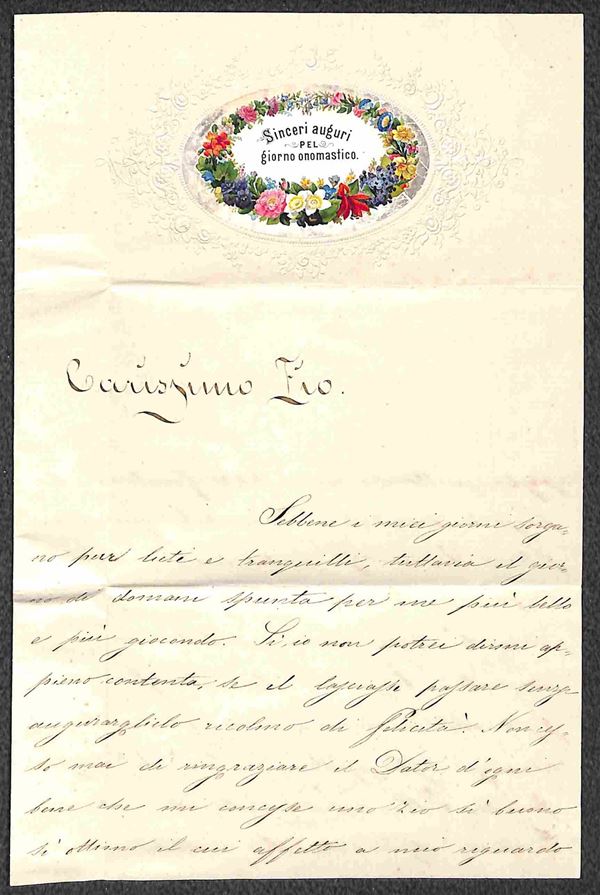 Sinceri auguri
PEL
giorno onomastico.
Carissimo Zio.
Sebbene i miei giorni sorga-
no pur lieti e tranquilli, tuttavia il gior-
no di domani spunta per me più bello
e più giocondo. Sì, io non potrei dirmi ap-
pieno contenta, se il lasciassi passare senza
augurarglielo ricolmo di felicità. Non ces-
so mai di ringraziare il Dator d'ogni
bene che mi concesse uno Zio sì buono
sì ottimo il cui affetto a mio riguardo